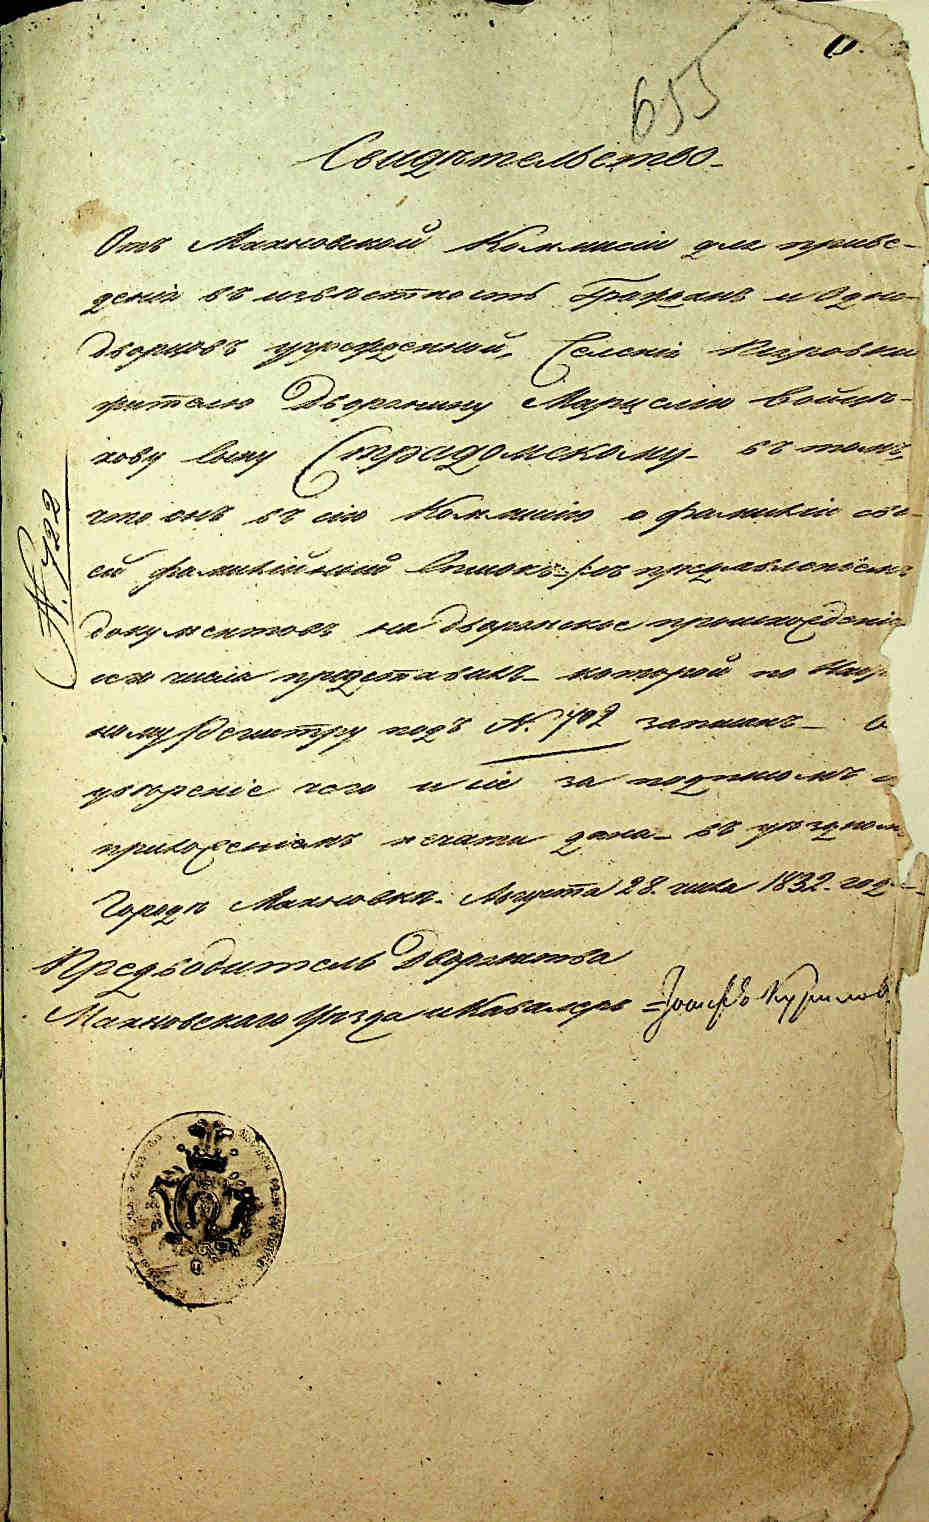 655
Свидѣтельство
Отъ Махновской Коммисіи для приве-
денія въ извѣстность Гражданъ и Одно-
дворцовъ учрежденной, Селенія
жителю Дворянину Марцелію Войцѣ-
хову сыну Страдомскому въ томъ,
что онъ въ сію Коммисію о фамиліи сво-
ей фамилійный Списокъ съ предъявленіемъ
документовъ на дворянское происхожденіе
сего числа представилъ который по
ному Регистру подъ N. 702 записанъ
увѣреніе чего и сіе за подписомъ
приложеніемъ печати дано въ уѣздномъ
Городѣ Махновкѣ. Августа 28. числа 1832. года
Предводитель Дворянства
Махновскаго Уѣзда и Кавалеръ Іосифъ
N. 722